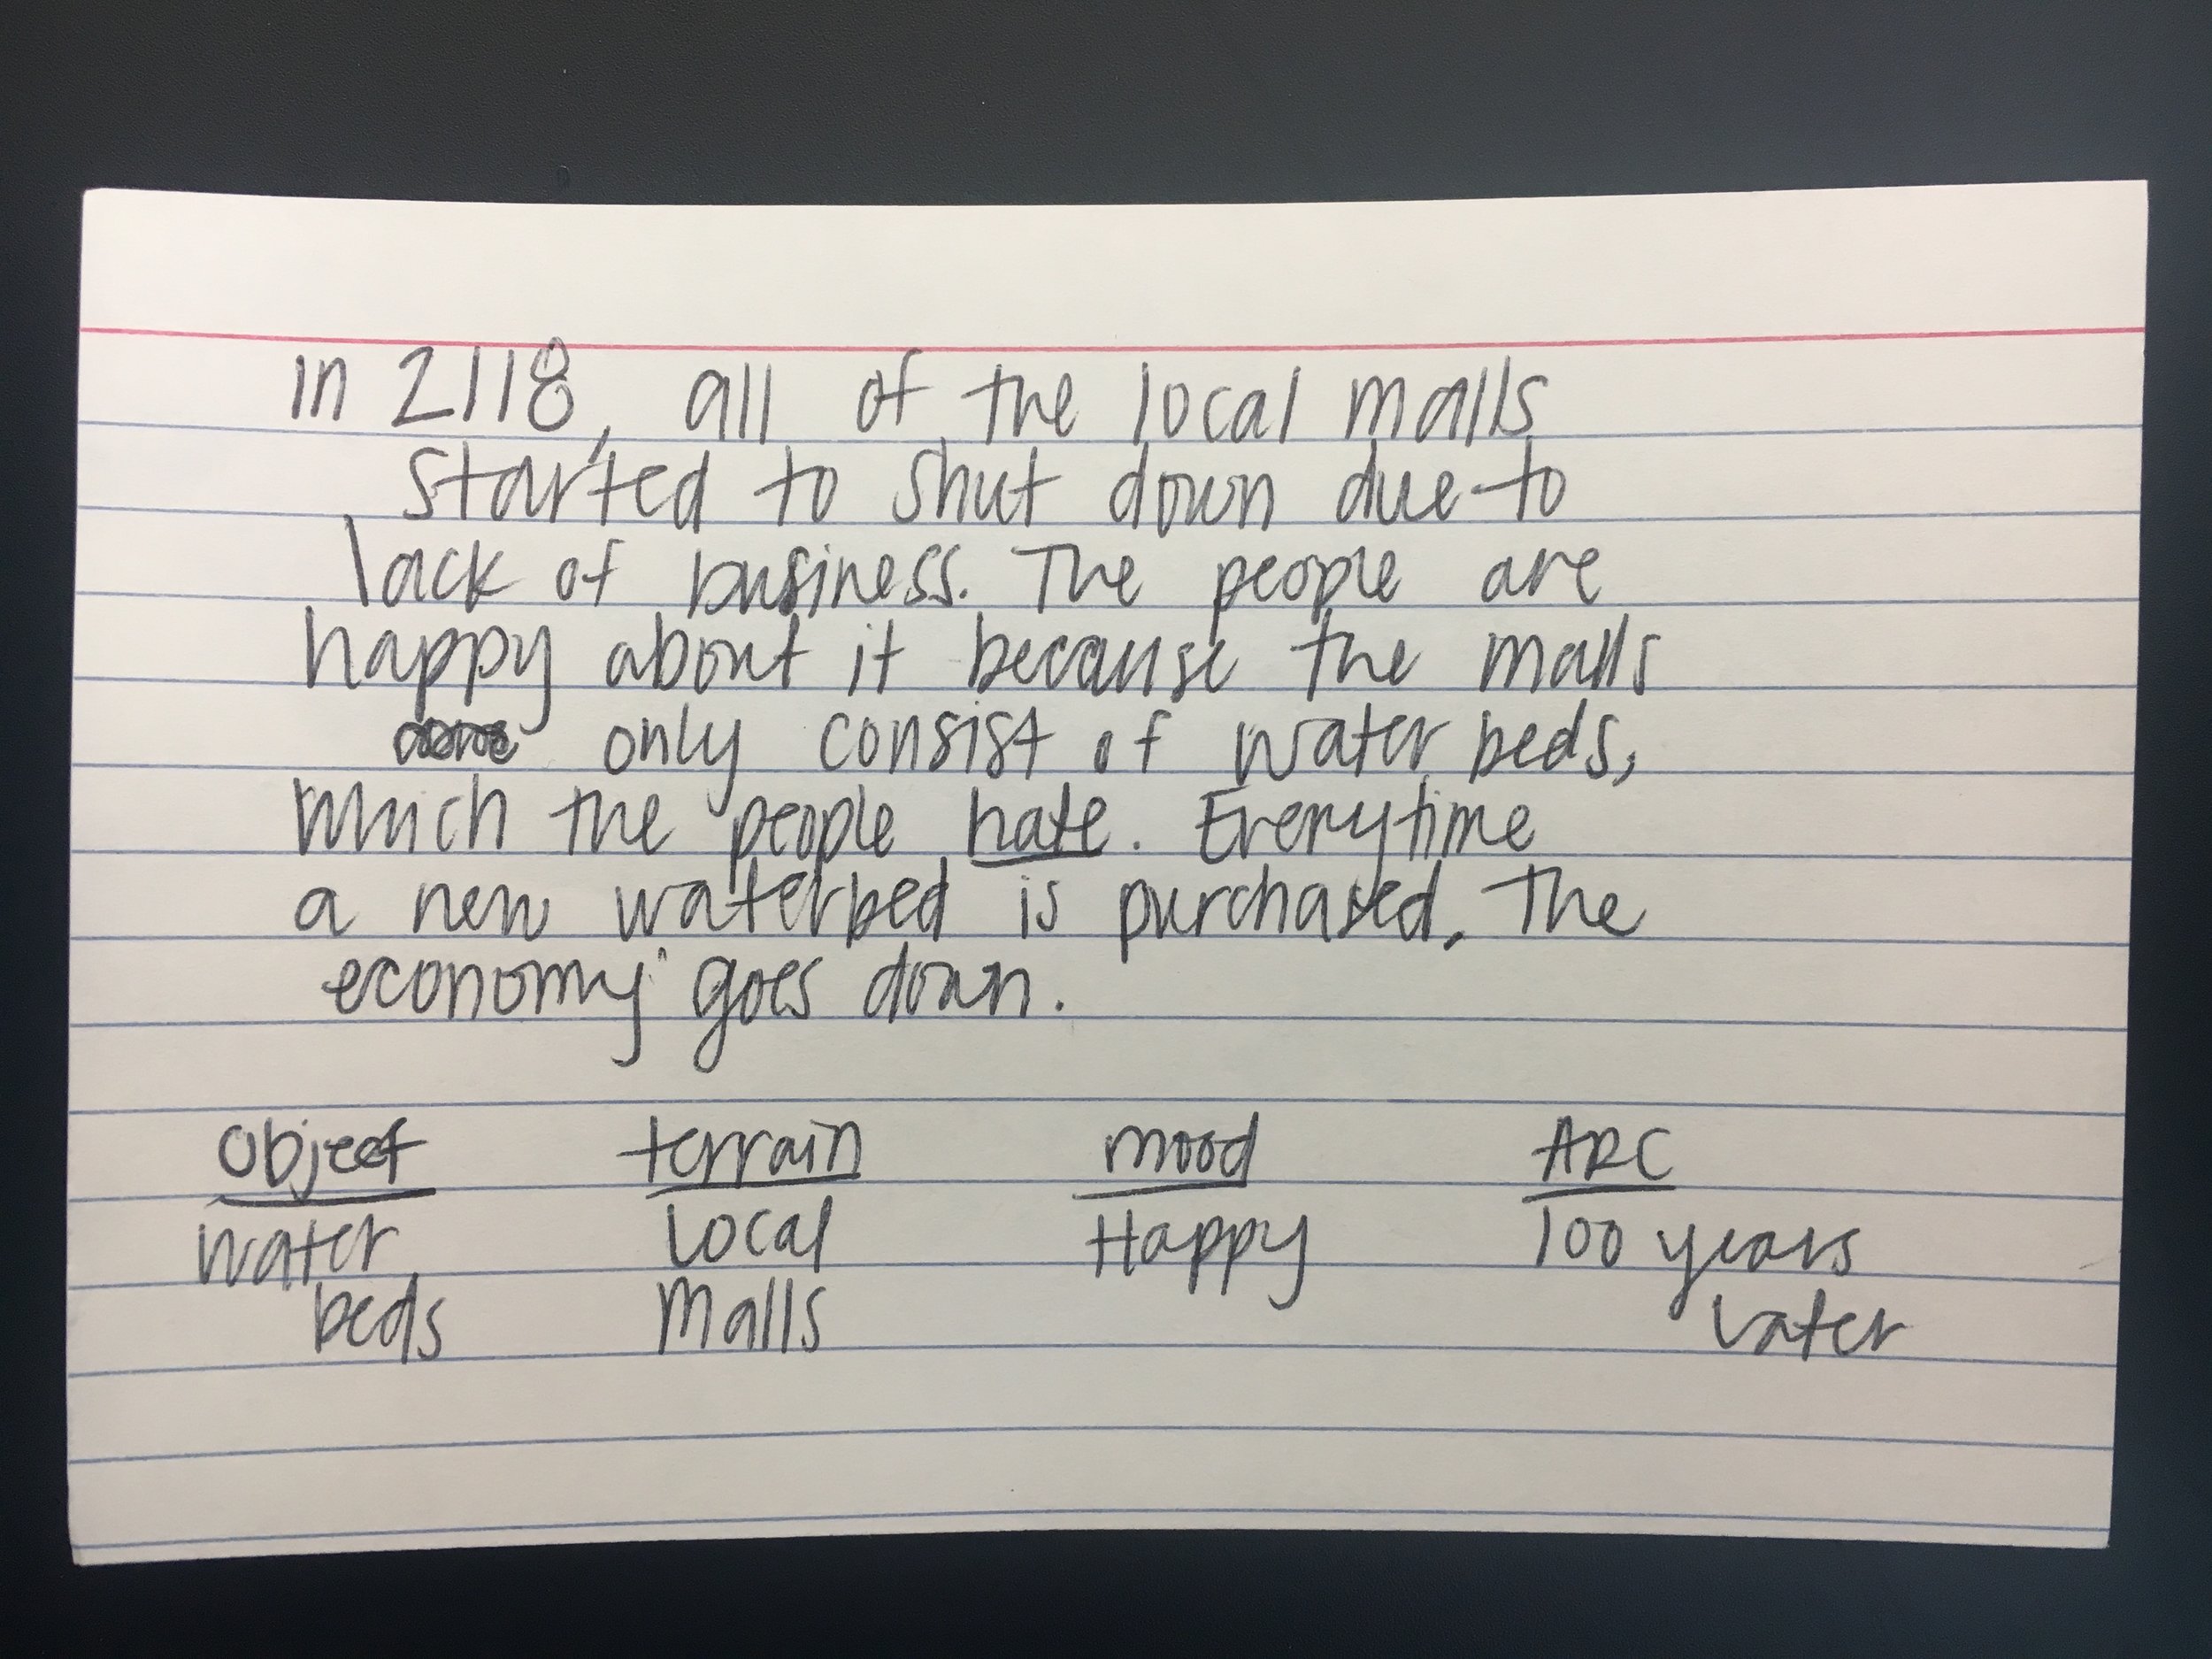 in 2118, all of the local malls
started to shut down due to
lack of business. The people are
happy about it because the malls
only consist of water beds,
which the people hate. Everytime
a new waterbed is purchased, the
economy goes down.
object terrain mood ARC
water local Happy 100 years
beds malls later